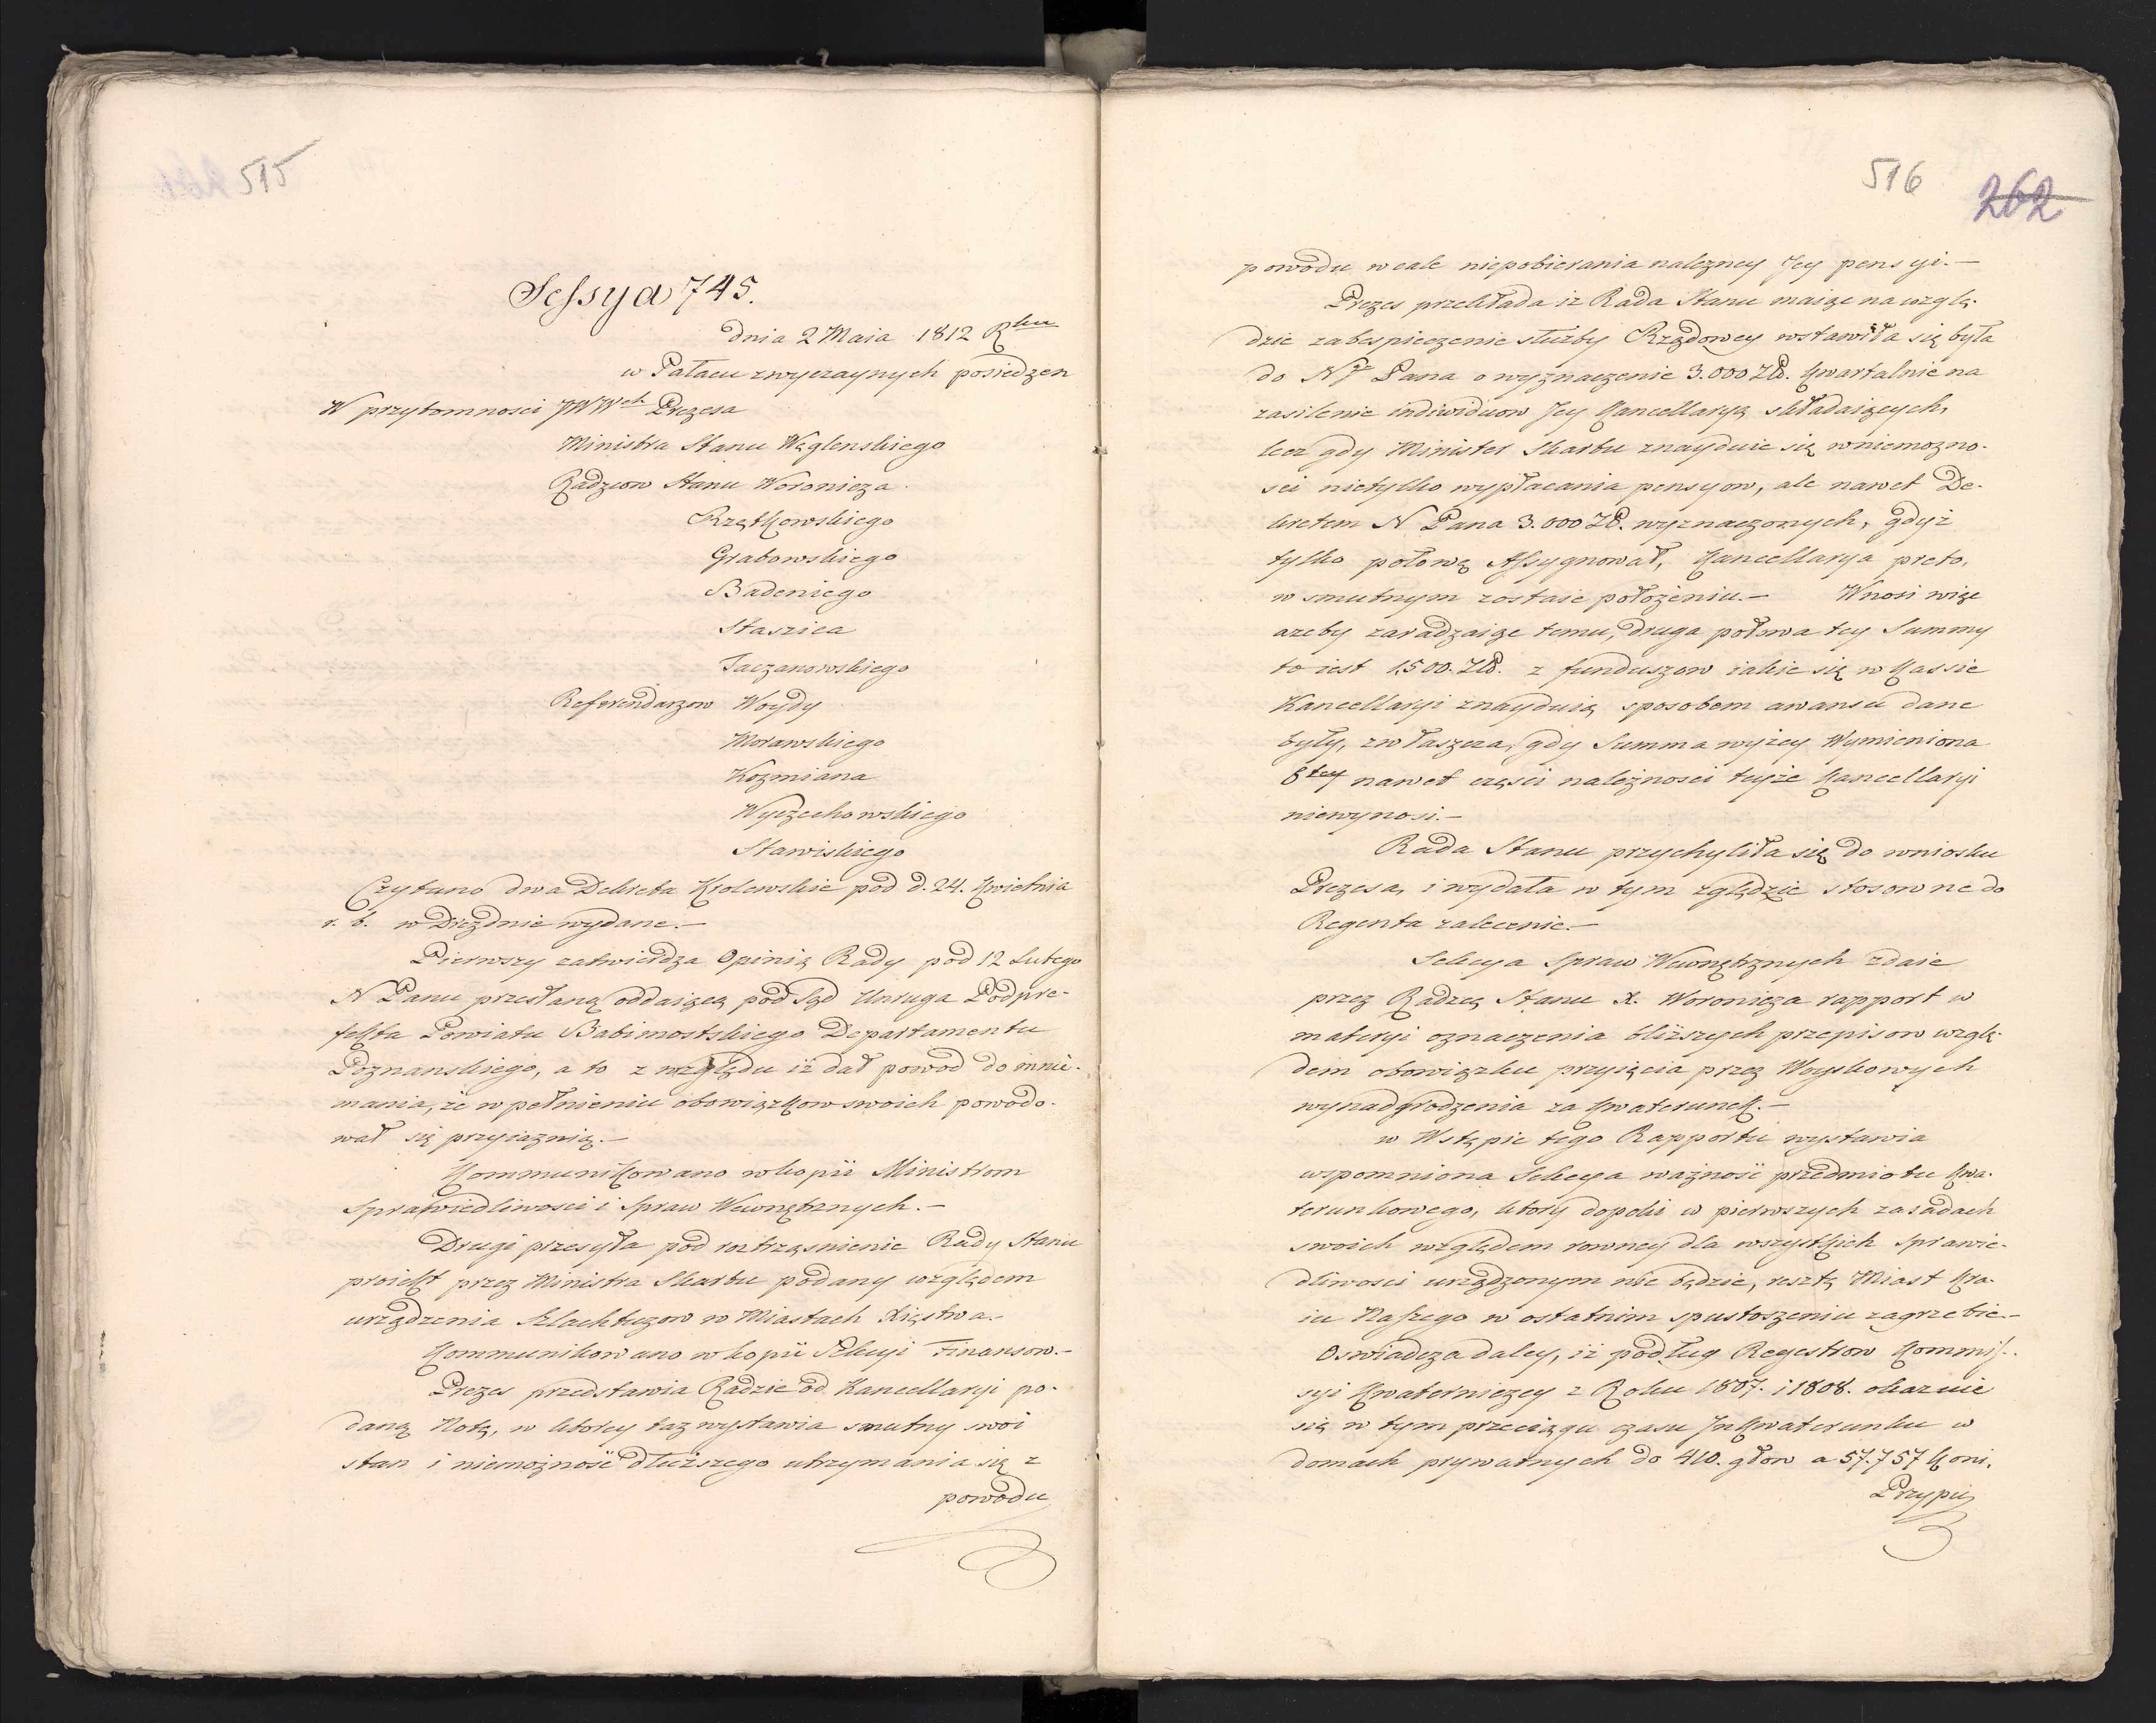 515
Sessya 745.
dnia 2 Maia 1812 Rku
w Pałacu zwyczaynych posiedzen
W przytomnosci JWWch Prezesa
Ministra Stanu Węglenskiego
Radzcow Stanu Woronicza
Rzętkowskiego
Grabowskiego
Badeniego
Staszica
Taczanowskiego
Referendarzow Woydy
Morawskiego
Kozmiana
Wyczechowskiego
Stawiskiego
Czytano dwa Dekreta Krolewskie pod d. 24. Kwietnia
r. b. w Dreznie wydane.-
Pierwszy zatwierdza Opinię Rady pod 12 Lutego
N Panu przesłaną oddaiącą pod Sąd Unruga Podpre-
fekta Powiatu Babimostskiego Departamentu
Poznanskiego, a to z względu iż dał powod do mnie-
mania, że w pełnieniu obowiązkow swoich powodo-
wał się przyiaznią.-
Kommunikowano w kopii Ministrom
Sprawiedliwosci i Spraw Wewnętrznych.-
Drugi przesyła pod roztrząsnienie Rady Stanu
proiekt przez Ministra Skarbu podany względem
urządzenia Szlachtuzow w Miastach Xięstwa.-
Kommunikowano w kopii Sekcyi Finansow.-
Prezes przedstawia Radzie od Kancellaryi po-
daną Notę, w ktorey taz wystawia smutny swoi
stan i niemożność dłuższego utrzymania się z
powodu
516
262
powodu wcale niepobierania nalezney Jey pensyi.-
Prezes przekłada iz Rada Stanu maiąc na wzglę-
dzie zabespieczenie służby Rządowey wstawiła się była
do N Pana o wyznaczenie 3.000 Zł. kwartalnie na
zasilenie indiwiduow Jey Kancellaryą składaiących,
lecz gdy Minister Skarbu znayduie się w niemozno-
sci nietylko wypłacania pensyow, ale nawet De-
kretem N Pana 3.000 Zł. wyznaczonych, gdyż
tylko połowę Assygnował, Kancellarya preto,
w smutnym zostaie położeniu.- Wnosi więc
azeby zaradzaiąc temu, druga połowa tey Summy
to iest 1,500. Zł. z funduszow iakie się w Kassie
Kancellaryi znayduią sposobem awansu dane
były, zwłaszcza, gdy Summa wyżey Wymieniona
8tey nawet części należnosci teyże Kancellaryi
niewynosi.-
Rada Stanu przychyliła się do wniosku
Prezesa, i wydała w tym zględzie stosowne do
Regenta zalecenie.-
Sekcya Spraw Wewnętrznych zdaie
przez Radzcę Stanu X. Woronicza rapport w
materyi oznaczenia bliższych przepisow wzglę-
dem obowiązku przyięcia przez Woyskowych
wynadgrodzenia za kwaterunek.-
w Wstępie tego Rapportu wystawia
wspomniona Sekcya ważność przedmiotu kwa-
terunkowego, ktory dopoki w pierwszych zasadach
swoich względem rowney dla wszystkich Sprawie-
dliwosci urządzonym nie będzie, resztę Miast Kra-
iu Naszego w ostatnim spustoszeniu zagrzebie.-
Oswiadcza daley, iż podług Regestrow Kommis-
syi Kwaterniczey z Roku 1807. i 1808. okazuie
się w tym przeciągu czasu Inkwaterunku w
domach prywatnych do 410. głow a 57.757 Koni,
Przypu